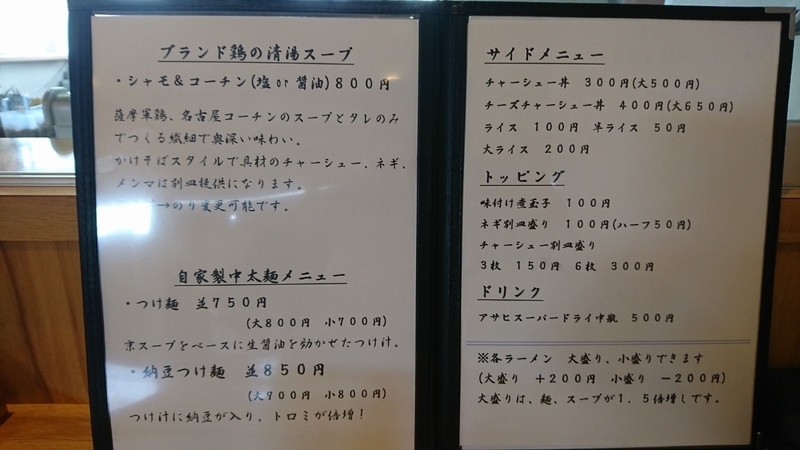 ブランド鶏の清湯スープ
・シャモ＆コーチン(塩 or 醤油)８００円
薩摩軍鶏、名古屋コーチンのスープとタレのみ
でつくる繊細で奥深い味わい。
かけそばスタイルで具材のチャーシュー、ネギ、
メンマは別皿提供になります。
→のり変更可能です。
自家製中太麺メニュー
・つけ麺　並７５０円
(大８００円　小７００円)
京スープをベースに生醤油を効かせたつけ汁。
・納豆つけ麺　並８５０円
(大９００円　小８００円)
つけ汁に納豆が入り、トロミが倍増！
サイドメニュー
チャーシュー丼　３００円(大５００円)
チーズチャーシュー丼　４００円(大６５０円)
ライス　１００円　半ライス　５０円
大ライス　２００円
トッピング
味付け煮玉子　１００円
ネギ別皿盛り　１００円(ハーフ５０円)
チャーシュー別皿盛り
３枚　１５０円　６枚　３００円
ドリンク
アサヒスーパードライ中瓶　５００円
※各ラーメン　大盛り、小盛りできます
(大盛り　＋２００円　小盛り　－２００円)
大盛りは、麺、スープが１．５倍増しです。